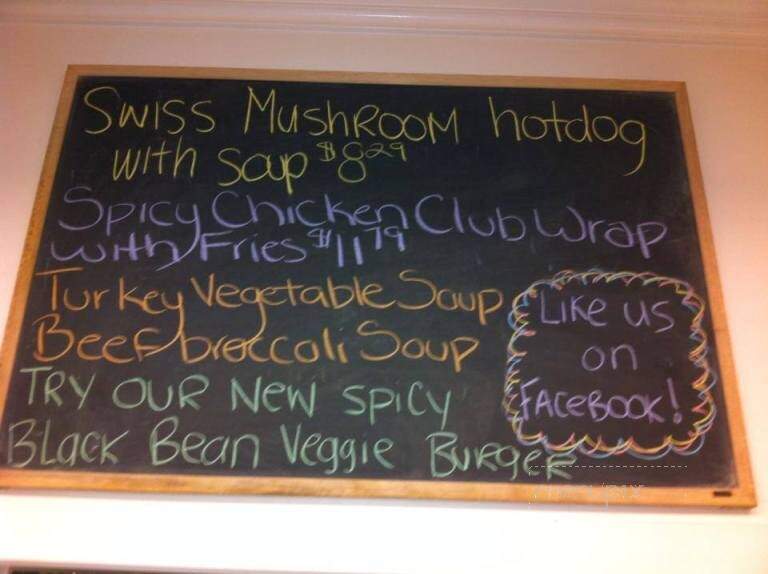 Swiss MushRoom hotdog
with soup $8.29
Spicy Chicken Club Wrap
with Fries $11.79
Turkey Vegetable Soup
Beef broccoli Soup
Try our new spicy
Black Bean Veggie Burger
Like us
on
Facebook!